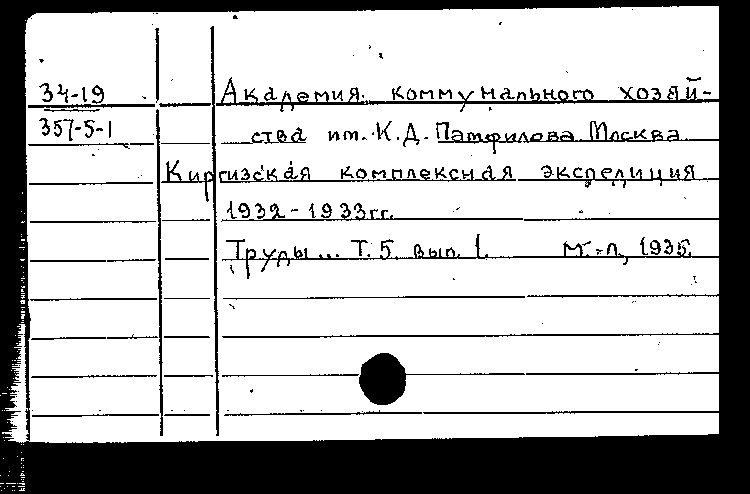 34-19 Академия коммунального хозяй-
357-5-1 ства им. К.Д. Памфилова Москва
Киргизская комплексная экспедиция
1932-1933гг.
Труды... Т. 5. вып. 1. М.-Л., 1935.